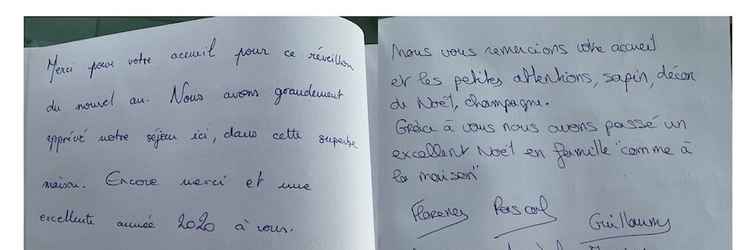 Merci pour votre accueil pour ce réveillon
du nouvel an. Nous avons grandement
apprécié notre séjour ici, dans cette superbe
maison. Encore merci et une
excellente année 2020 à vous.
Nous vous remercions votre accueil
et les petites attentions, sapin, décor
de Noël, champagne.
Grâce à vous nous avons passé un
excellent Noël en famille "comme à
la maison"
Florence Pascal Guillaume